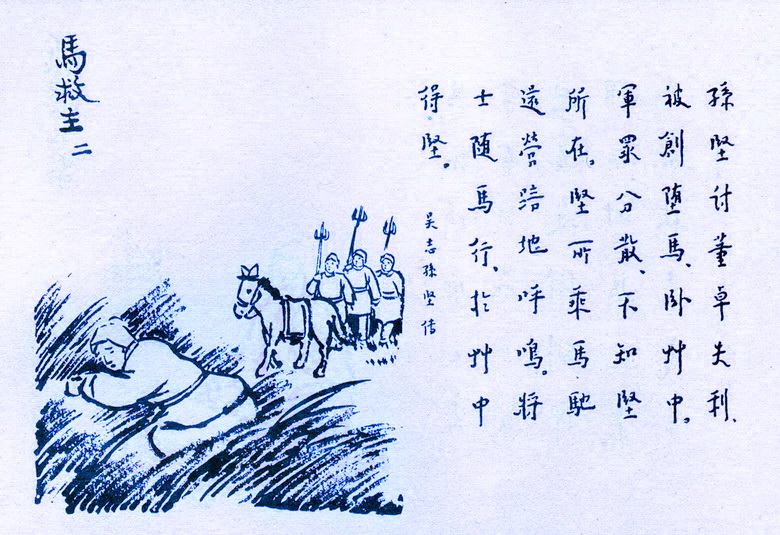 孫堅討董卓失利、
被創堕馬、臥艸中。
軍眾分散、不知堅
所在。堅所乘馬馳
還營踣地呼鳴。將
士随馬行。於艸中
得堅。
吴志孫堅傳
馬救主 二